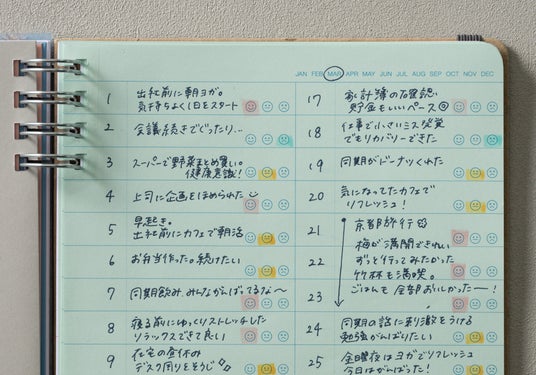 JAN FEB MAR APR MAY JUN JUL AUG SEP OCT NOV DEC
1 出社前に朝ヨガ。
気持ちよく1日をスタート
2 会議続きでぐったり...
3 スーパーで野菜まとめ買い。
健康意識!
4 上司に企画をほめられた
5 早起き。
出社前にカフェで朝活
6 お弁当作った。続けたい
7 同期飲み。みんながんばってるな〜
8 寝る前にゆっくりストレッチしたら
リラックスできて良い
9 在宅の昼休み
デスク周りをそうじ
17 家計簿の確認。
貯金もいいペース
18 仕事で小さいミス発覚
でもリカバリーできた
19 同期がドーナツくれた
20 気になってたカフェで
リフレッシュ!
21 京都旅行
梅が満開できれい
22 ずっと行ってみたかった
竹林も満喫。
23 ごはんも全部おいしかったー!
24 同期の話に刺激をうける
勉強がんばりたい
25 金曜夜はヨガでリフレッシュ
今日はがんばった!